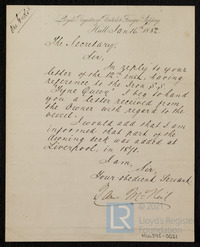 Lloyd's Register of British & Foreign Shipping
Hull Jan 16th 1882
The Secretary,
Sir,
In reply to your
letter of the 12th inst. having
reference to the Iron S.S.
"Tyne Queen" I beg to hand
you a letter received from
the Owner with regard to
the vessel.
I would add that I am
informed that part of the
closing work was added at
Liverpool in 1871.
I am,
Sir,
Your obedient Servant
Lloyd's
Register
Foundation